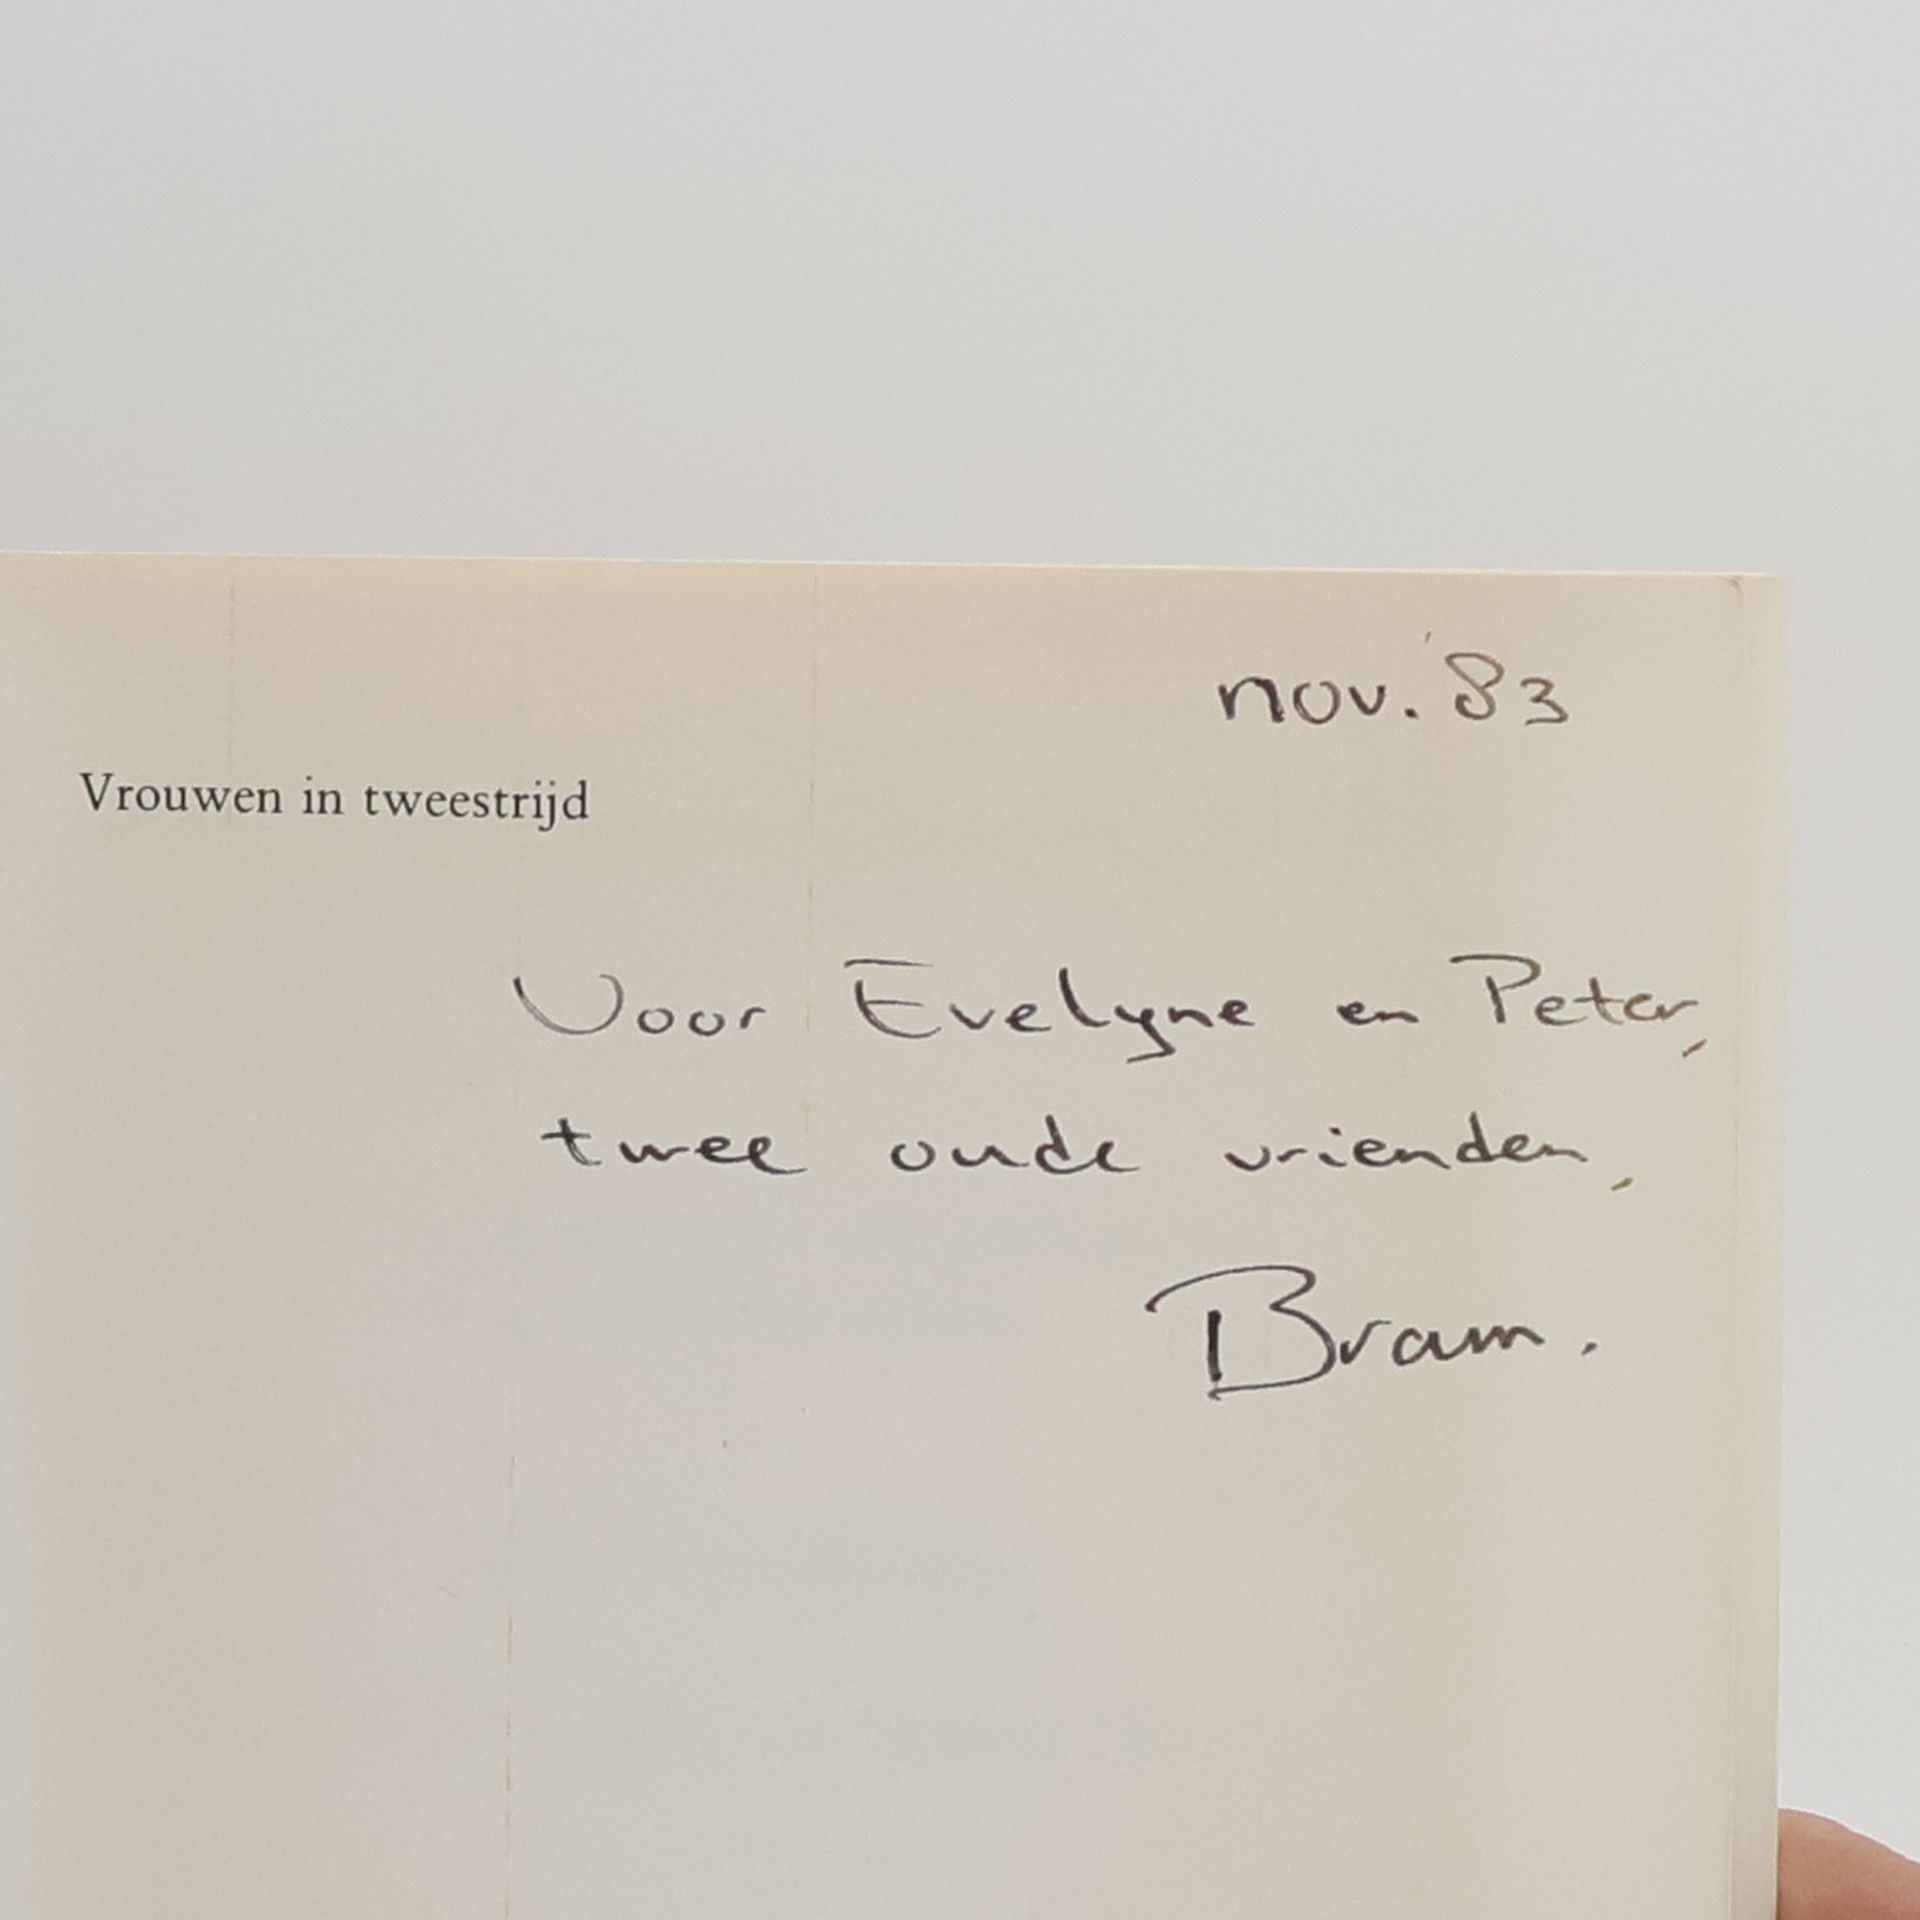 nov. '83
Vrouwen in tweestrijd
Voor Evelyne en Peter,
twee oude vrienden,
Bram.